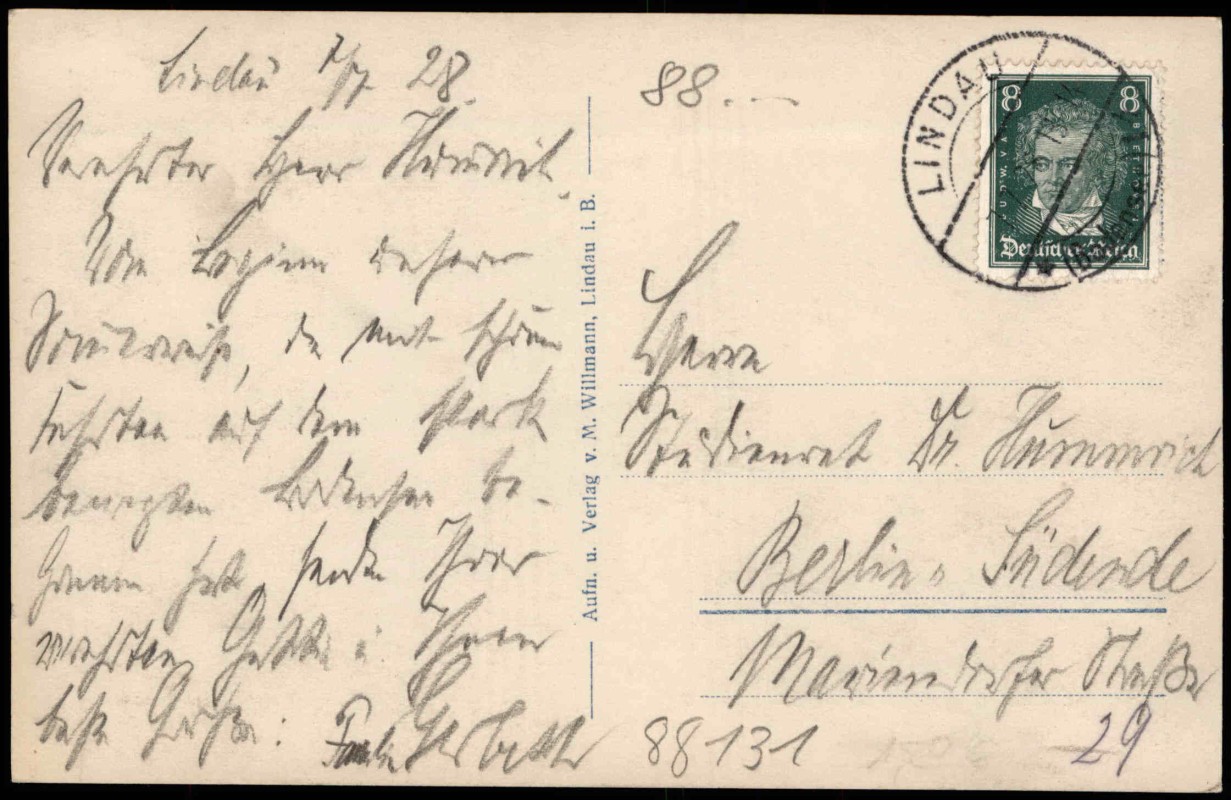 Lindau 7/7 28.
Verehrter Herr Hummrich.
Vom Beginn unserer
Sommerreise, die mit schönen
Fahrten auf dem stark
bewegten Bodensee be-
gonnen hat, senden Ihrer
verehrten Gattin u. Ihnen
beste Grüße: Familie
Aufn. u. Verlag v. M. Willmann, Lindau i. B.
88
LINDAU
(Bodensee)
8 8
LUDW. V. BEETHOVEN
Deutsches Reich
Herrn
Studienrat Dr. Hummrich
Berlin-Südende
Mariendorfer Straße
29
88131